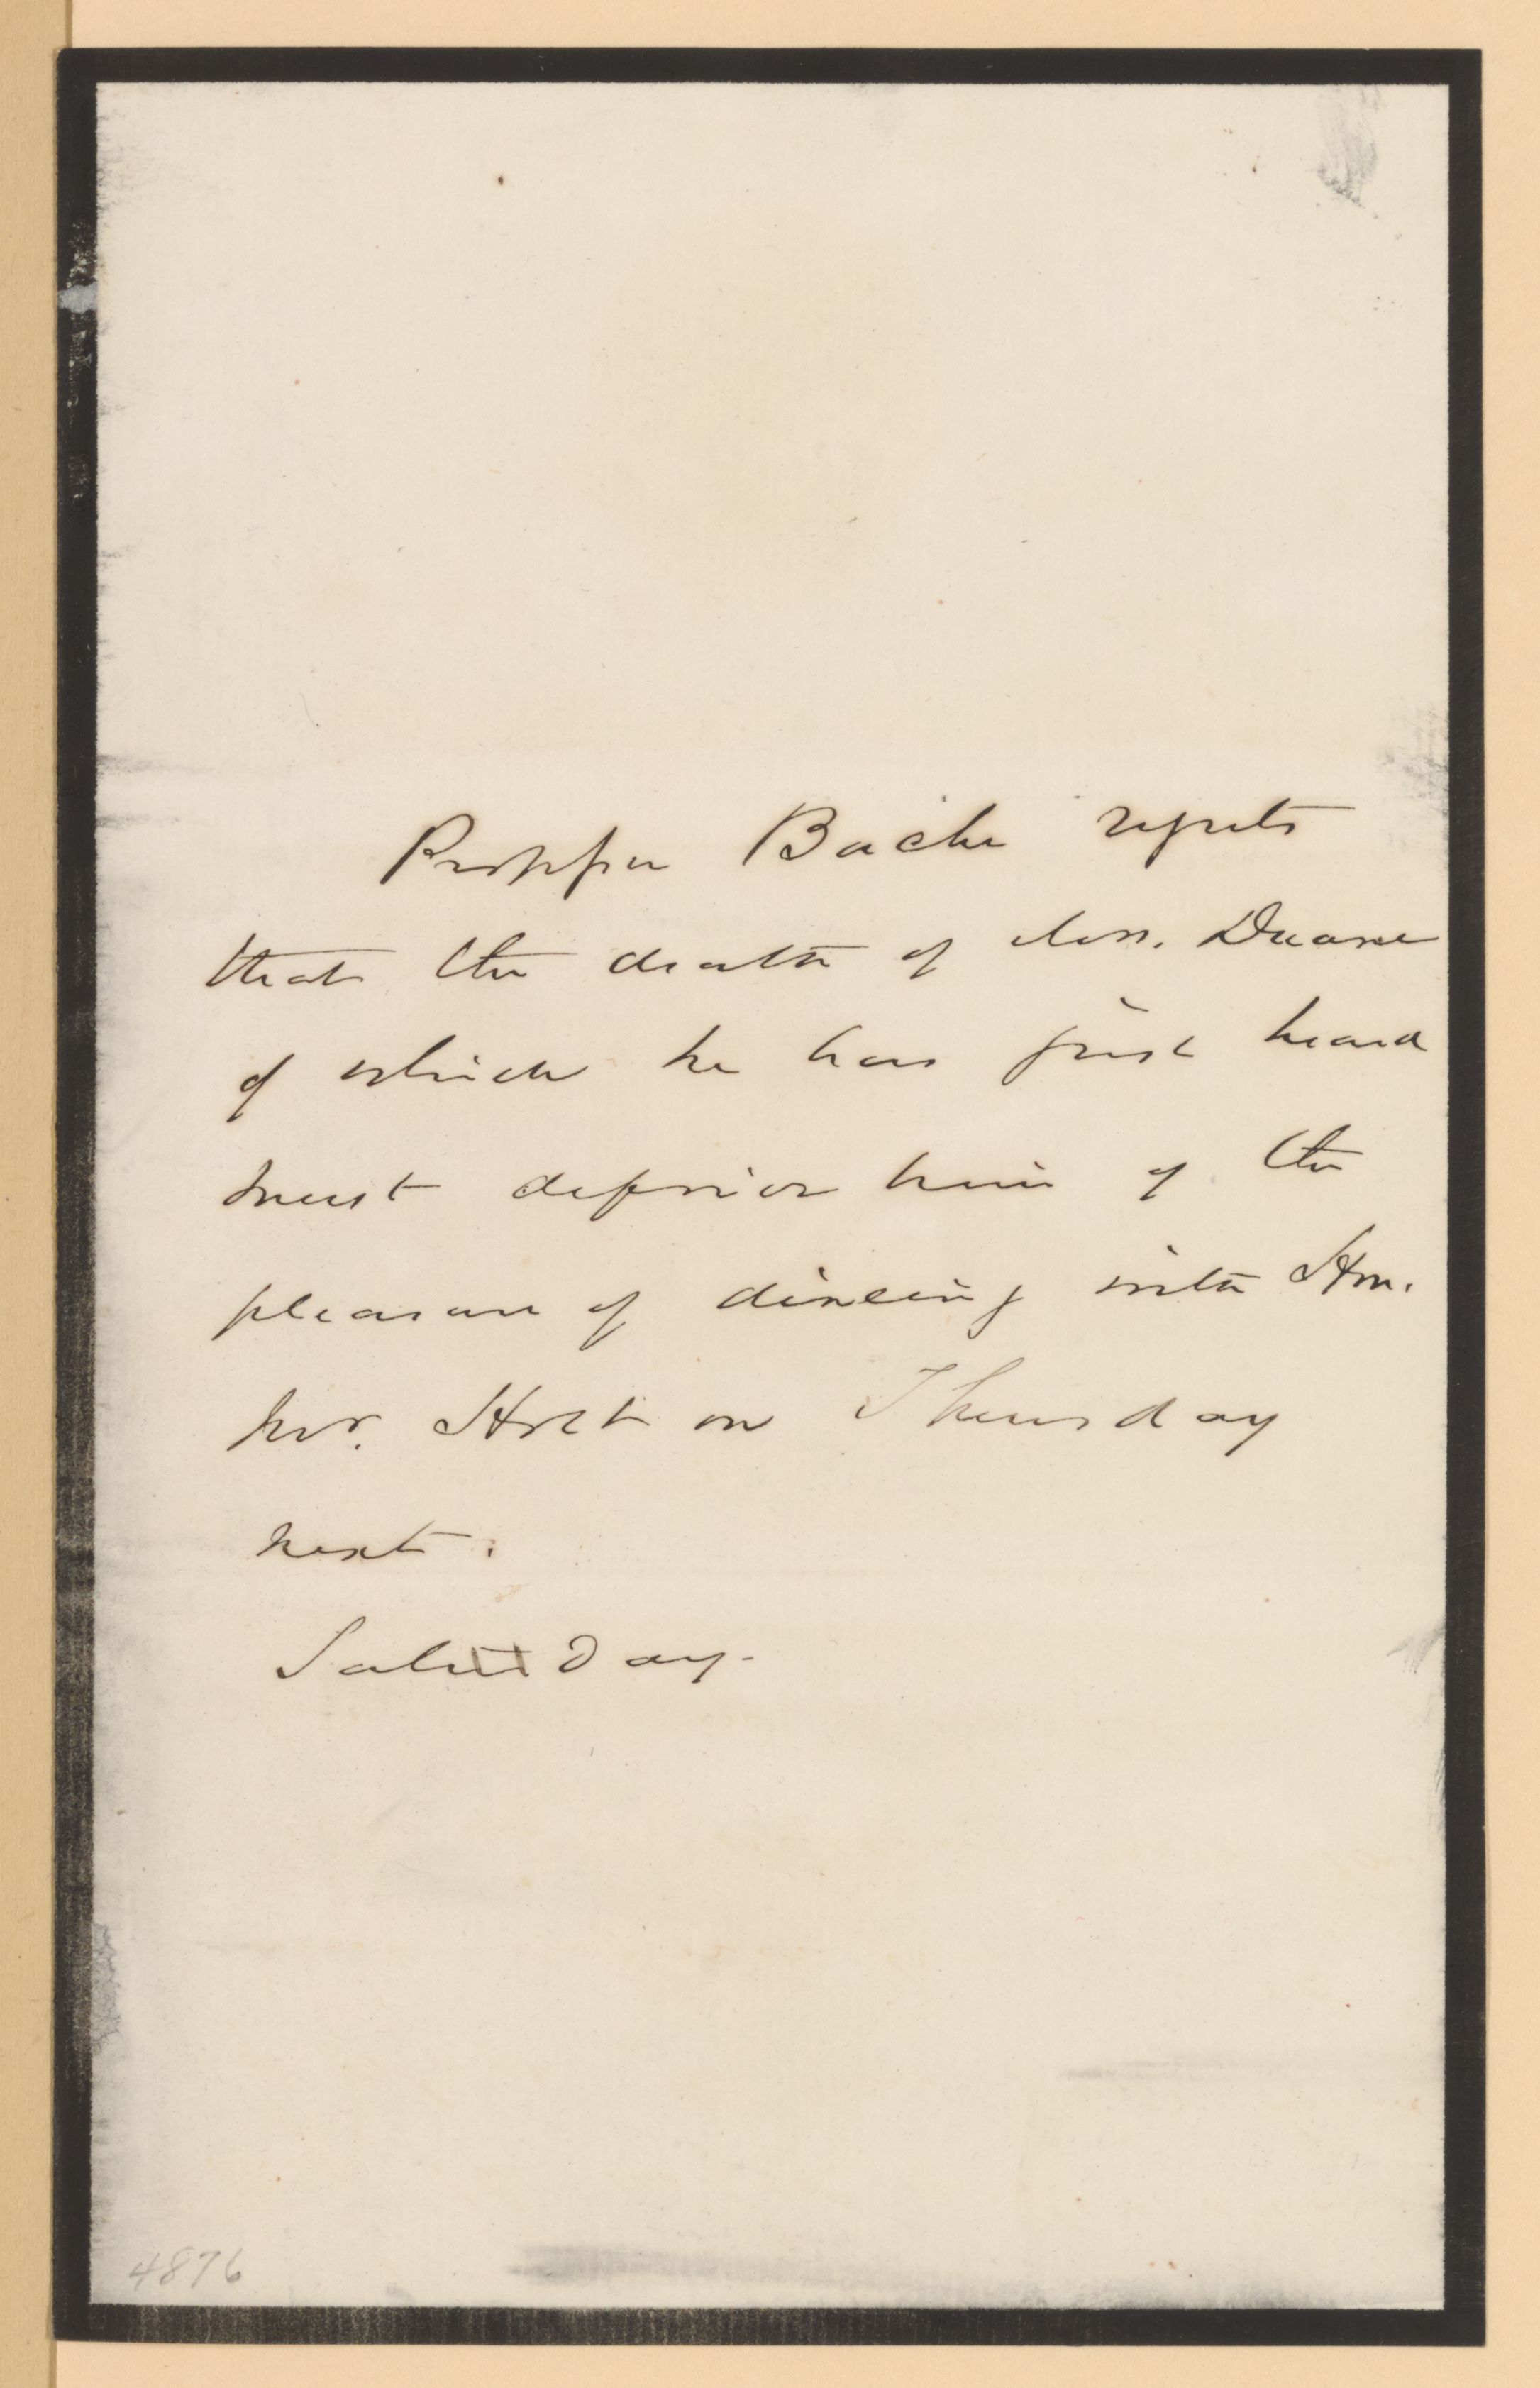 Professor Bache regrets
that the death of Mrs. Duane
of which he has just heard
must deprive him of the
pleasure of dining with Hon.
Mr. Holt on Thursday
next.
Saturday.
4876